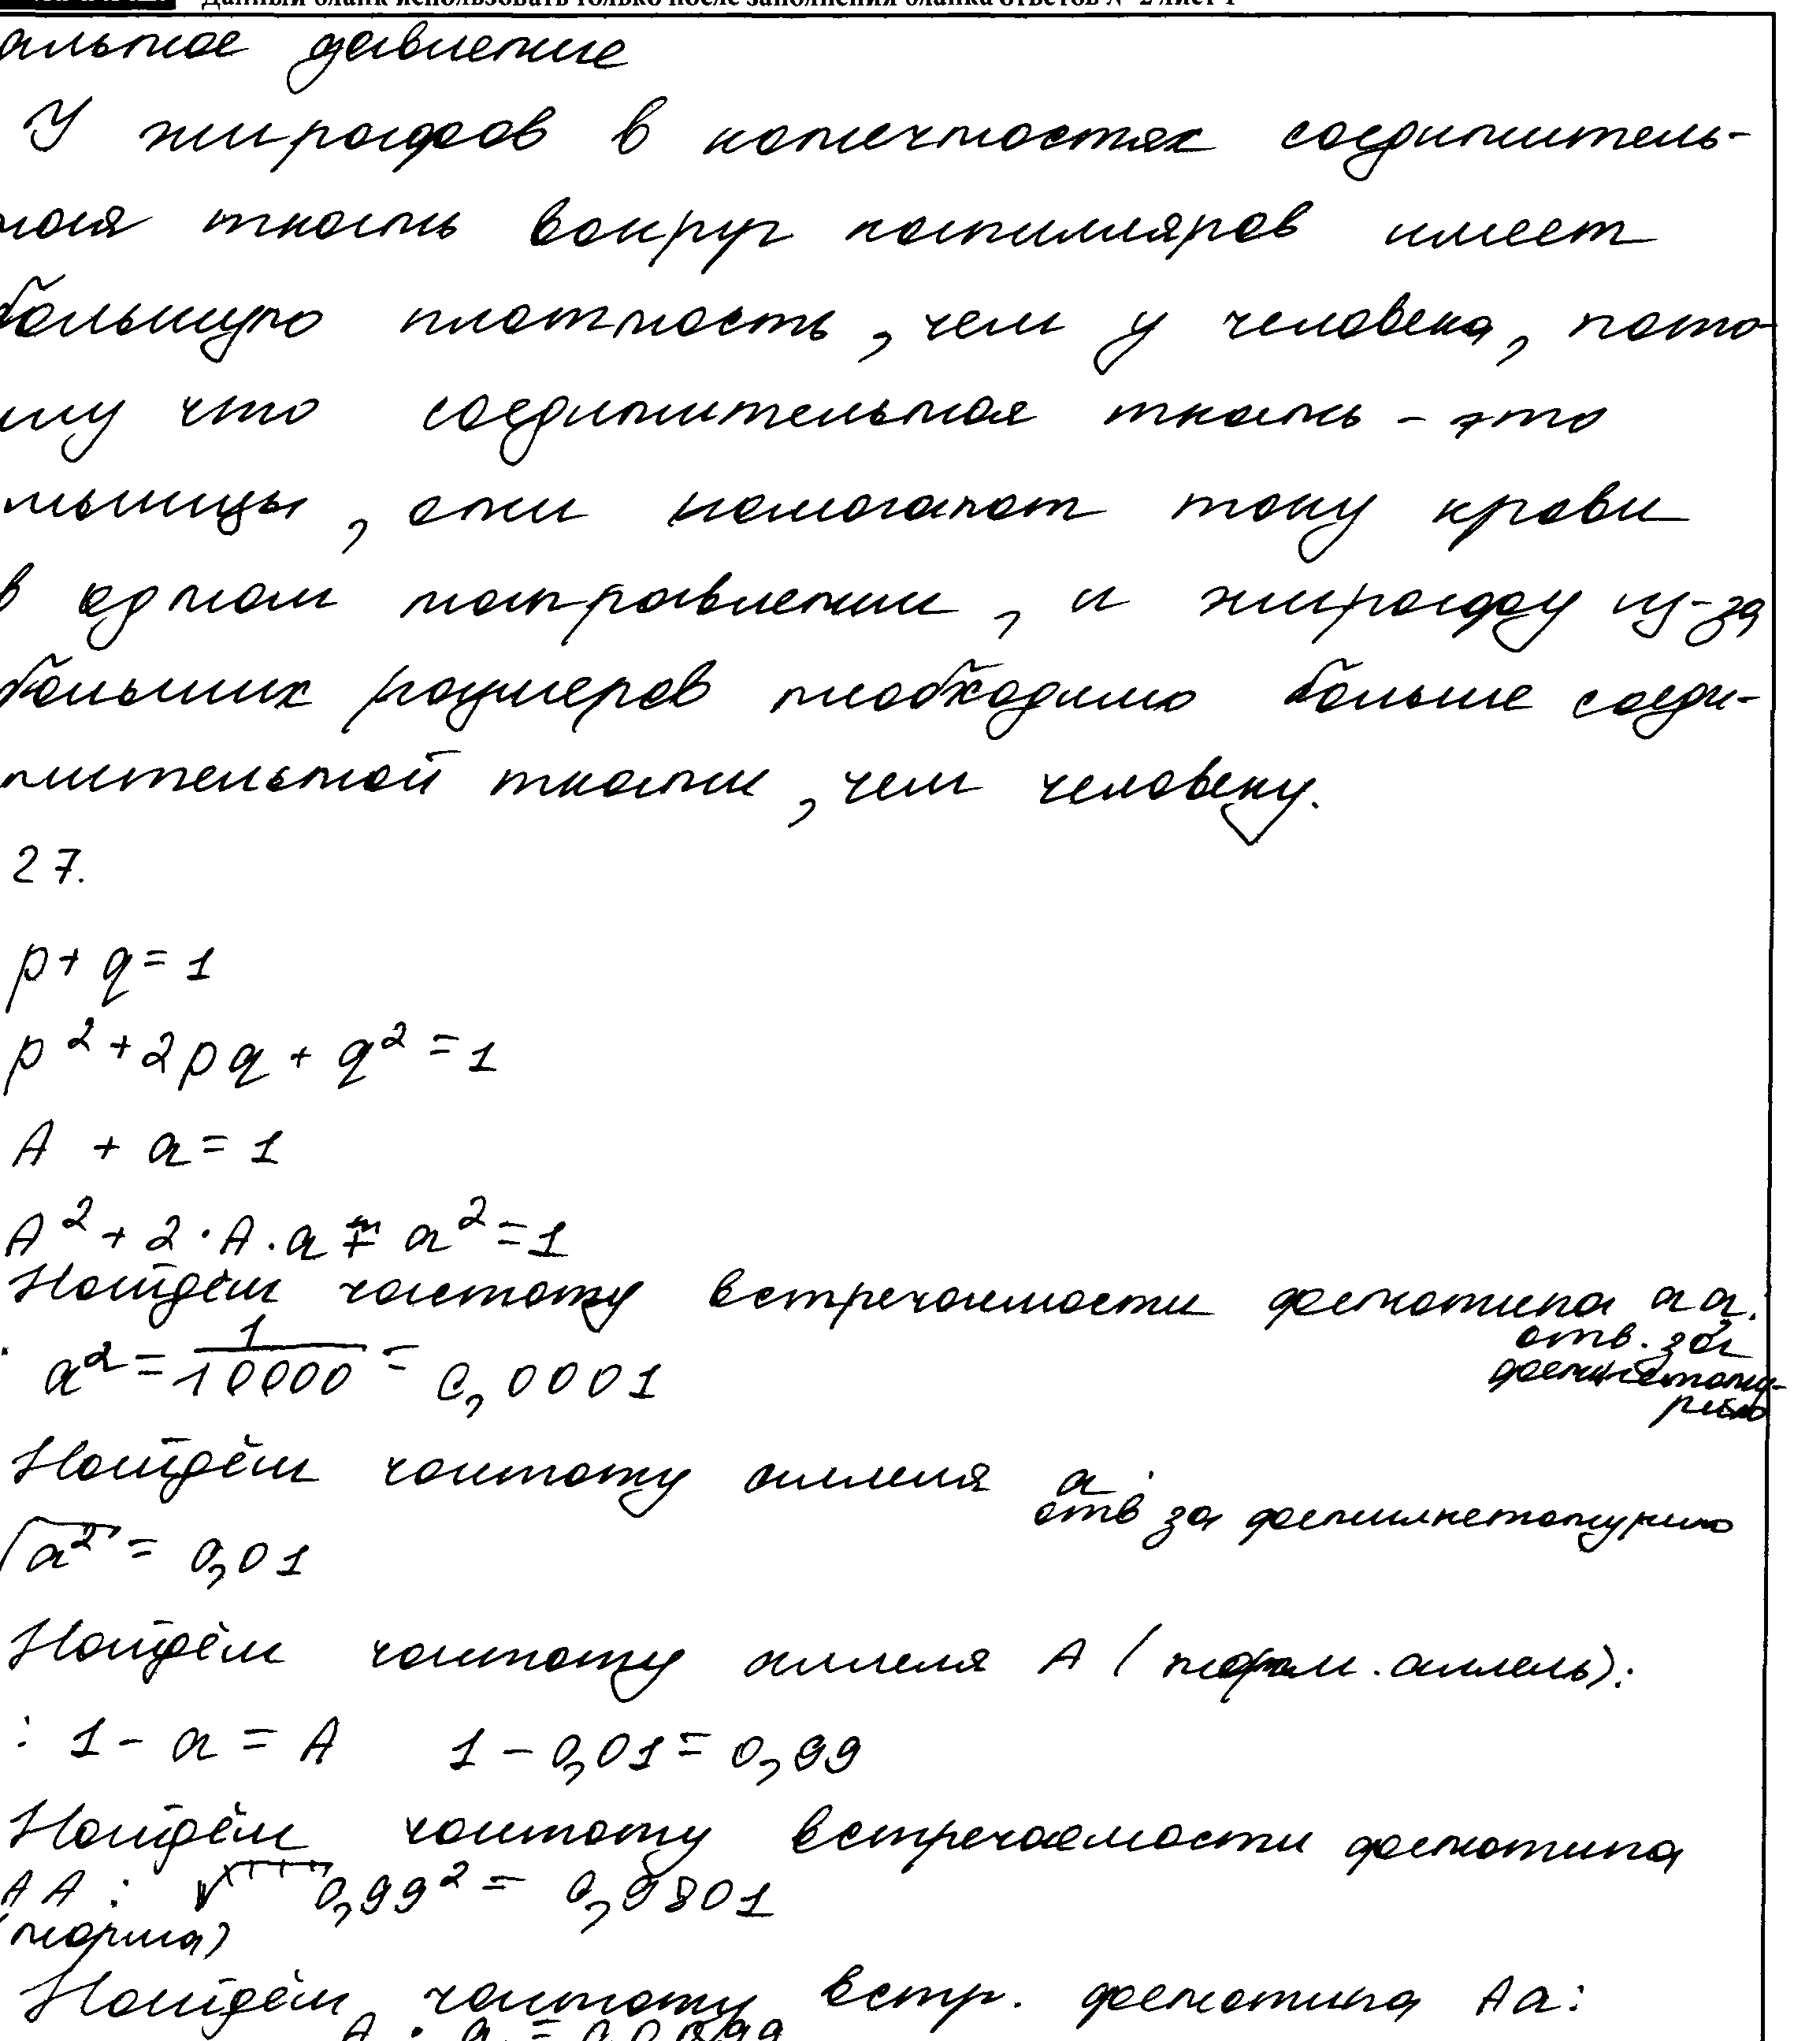 Данный бланк использовать только после заполнения бланка ответов № 2 лист 1
альное давление
У жирафов в конечностях соединитель-
ная ткань вокруг капилляров имеет
большую плотность, чем у человека, пото-
му что соединительная ткань - это
мышцы, они помогают току крови
в одном направлении, и жирафу из-за
больших размеров необходимо больше соеди-
нительной ткани, чем человеку.
27.
p + q = 1
p² + 2pq + q² = 1
A + a = 1
A² + 2 · A · a + a² = 1
Найдём частоту встречаемости фенотипа aa.
отв. за
a² = 1/10000 = 0,0001
Найдём частоту аллеля a.
отв за фенилкетонурию
√a² = 0,01
Найдём частоту аллеля A (норм. аллель):
: 1 - a = A 1 - 0,01 = 0,99
Найдём частоту встречаемости фенотипа
AA : 0,99² = 0,9801
(норма)
Найдём частоту встр. фенотипа Aa: